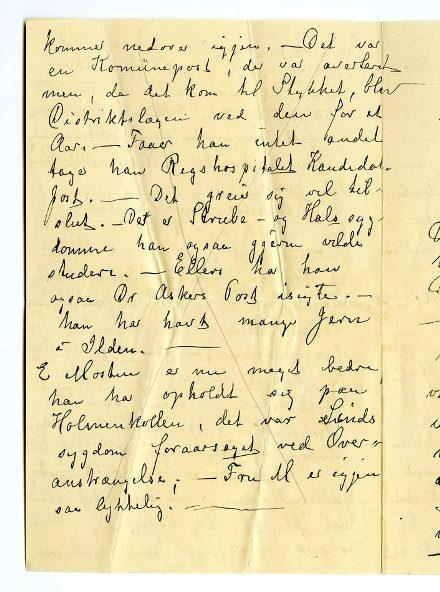 kommer nedover igjen. — Det var
en Kommünepost, der var averteret
men, da det kom til Stykket, blev
Distriktslægen ved den for et
Aar. — Faaer han intet andet
tage han Regshospitalet Kandidat-
post. — Det greie sig vel til-
slut. — Det er Strube - og Hals syg-
domme han ogsaa gjerne vilde
studere. — Ellers har han
ogsaa Dr Askers Post isigte. —
han har havt mange Jern
i Ilden. —
E Mosken er nu meget bedre
han ha opholdt sig paa
Holmenkollen, det var Sinds
sygdom foraarsaget ved Over=
anstrængelse, — Fru M er igjen
saa lykkelig. —